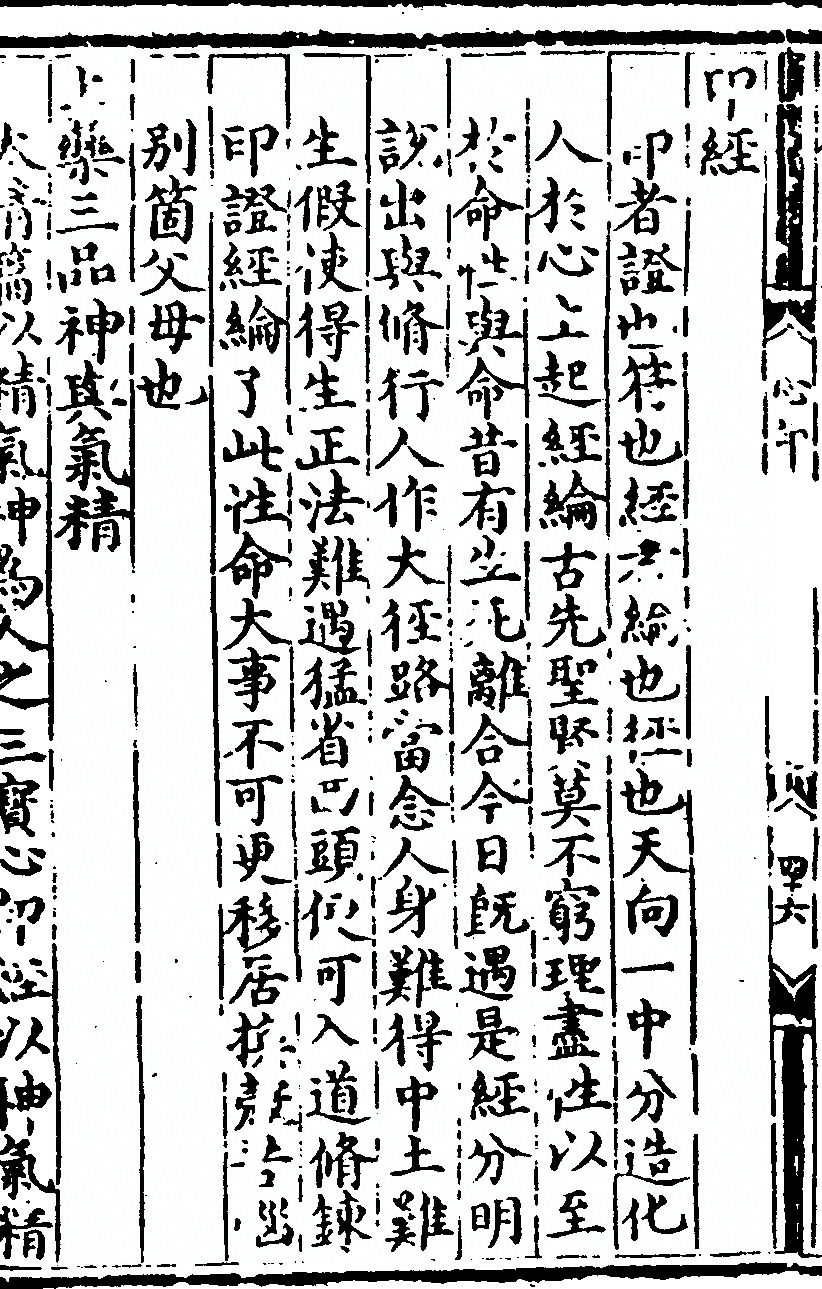 心印
四六
印經
印者證也符也經者綸也徑也天向一中分造化
人於心上起經綸古先聖賢莫不窮理盡性以至
於命性與命昔有生死離合今日既遇是經分明
說出與脩行人作大徑路當念人身難得中土難
生假使得生正法難遇猛省回頭便可入道脩鍊
印證經綸了此性命大事不可更移居換殼
別箇父母也
上藥三品神與氣精
以精氣神為人之三寶心印經以神氣精